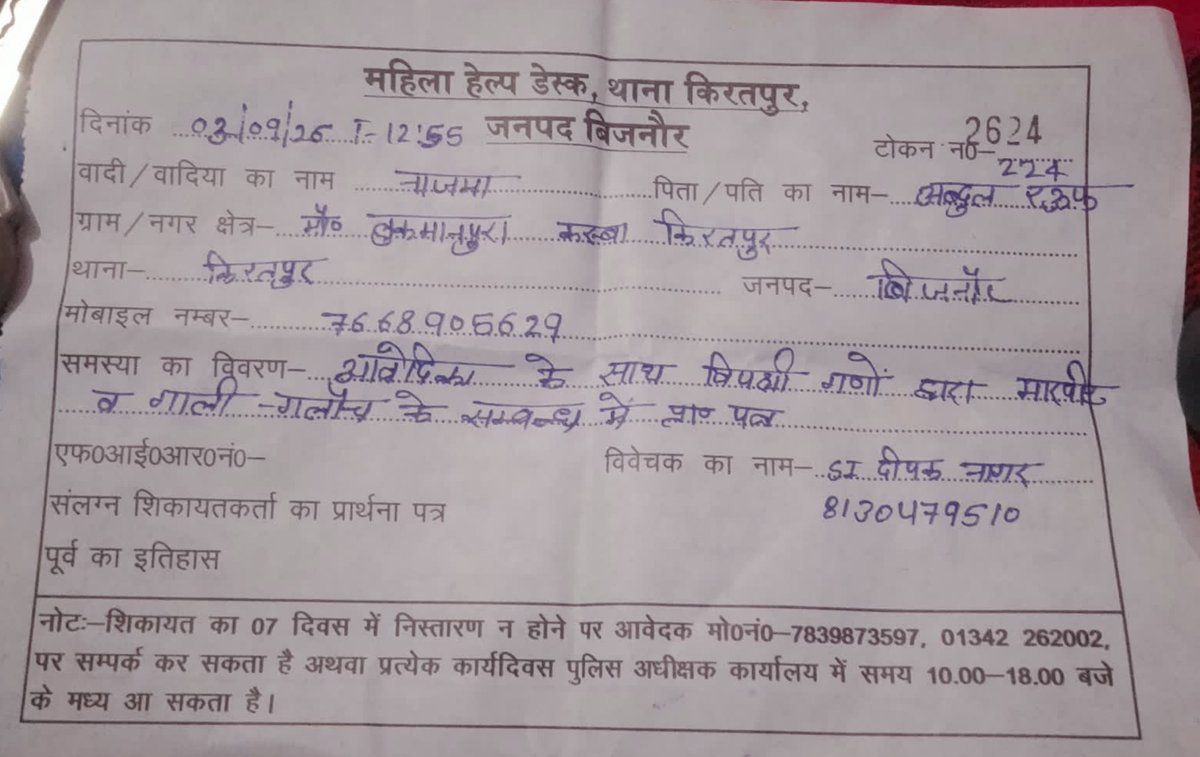 महिला हेल्प डेस्क, थाना किरतपुर,
जनपद बिजनौर
दिनांक 03/09/26 T-12:55
टोकन न0- 2624
224
वादी/वादिया का नाम नाजमा पिता/पति का नाम- अब्दुल रऊफ
ग्राम/नगर क्षेत्र- मौ० लुकमानपुरा कस्बा किरतपुर
थाना- किरतपुर जनपद- बिजनौर
मोबाइल नम्बर- 7668905629
समस्या का विवरण- आवेदिका के साथ विपक्षी गणों द्वारा मारपीट
व गाली-गलौच के सम्बन्ध में प्रा० पत्र
एफ0आई0आर0नं0-
विवेचक का नाम- SI दीपक नागर
संलग्न शिकायतकर्ता का प्रार्थना पत्र 8130479510
पूर्व का इतिहास
नोटः-शिकायत का 07 दिवस में निस्तारण न होने पर आवेदक मो0नं0-7839873597, 01342 262002,
पर सम्पर्क कर सकता है अथवा प्रत्येक कार्यदिवस पुलिस अधीक्षक कार्यालय में समय 10.00-18.00 बजे
के मध्य आ सकता है।